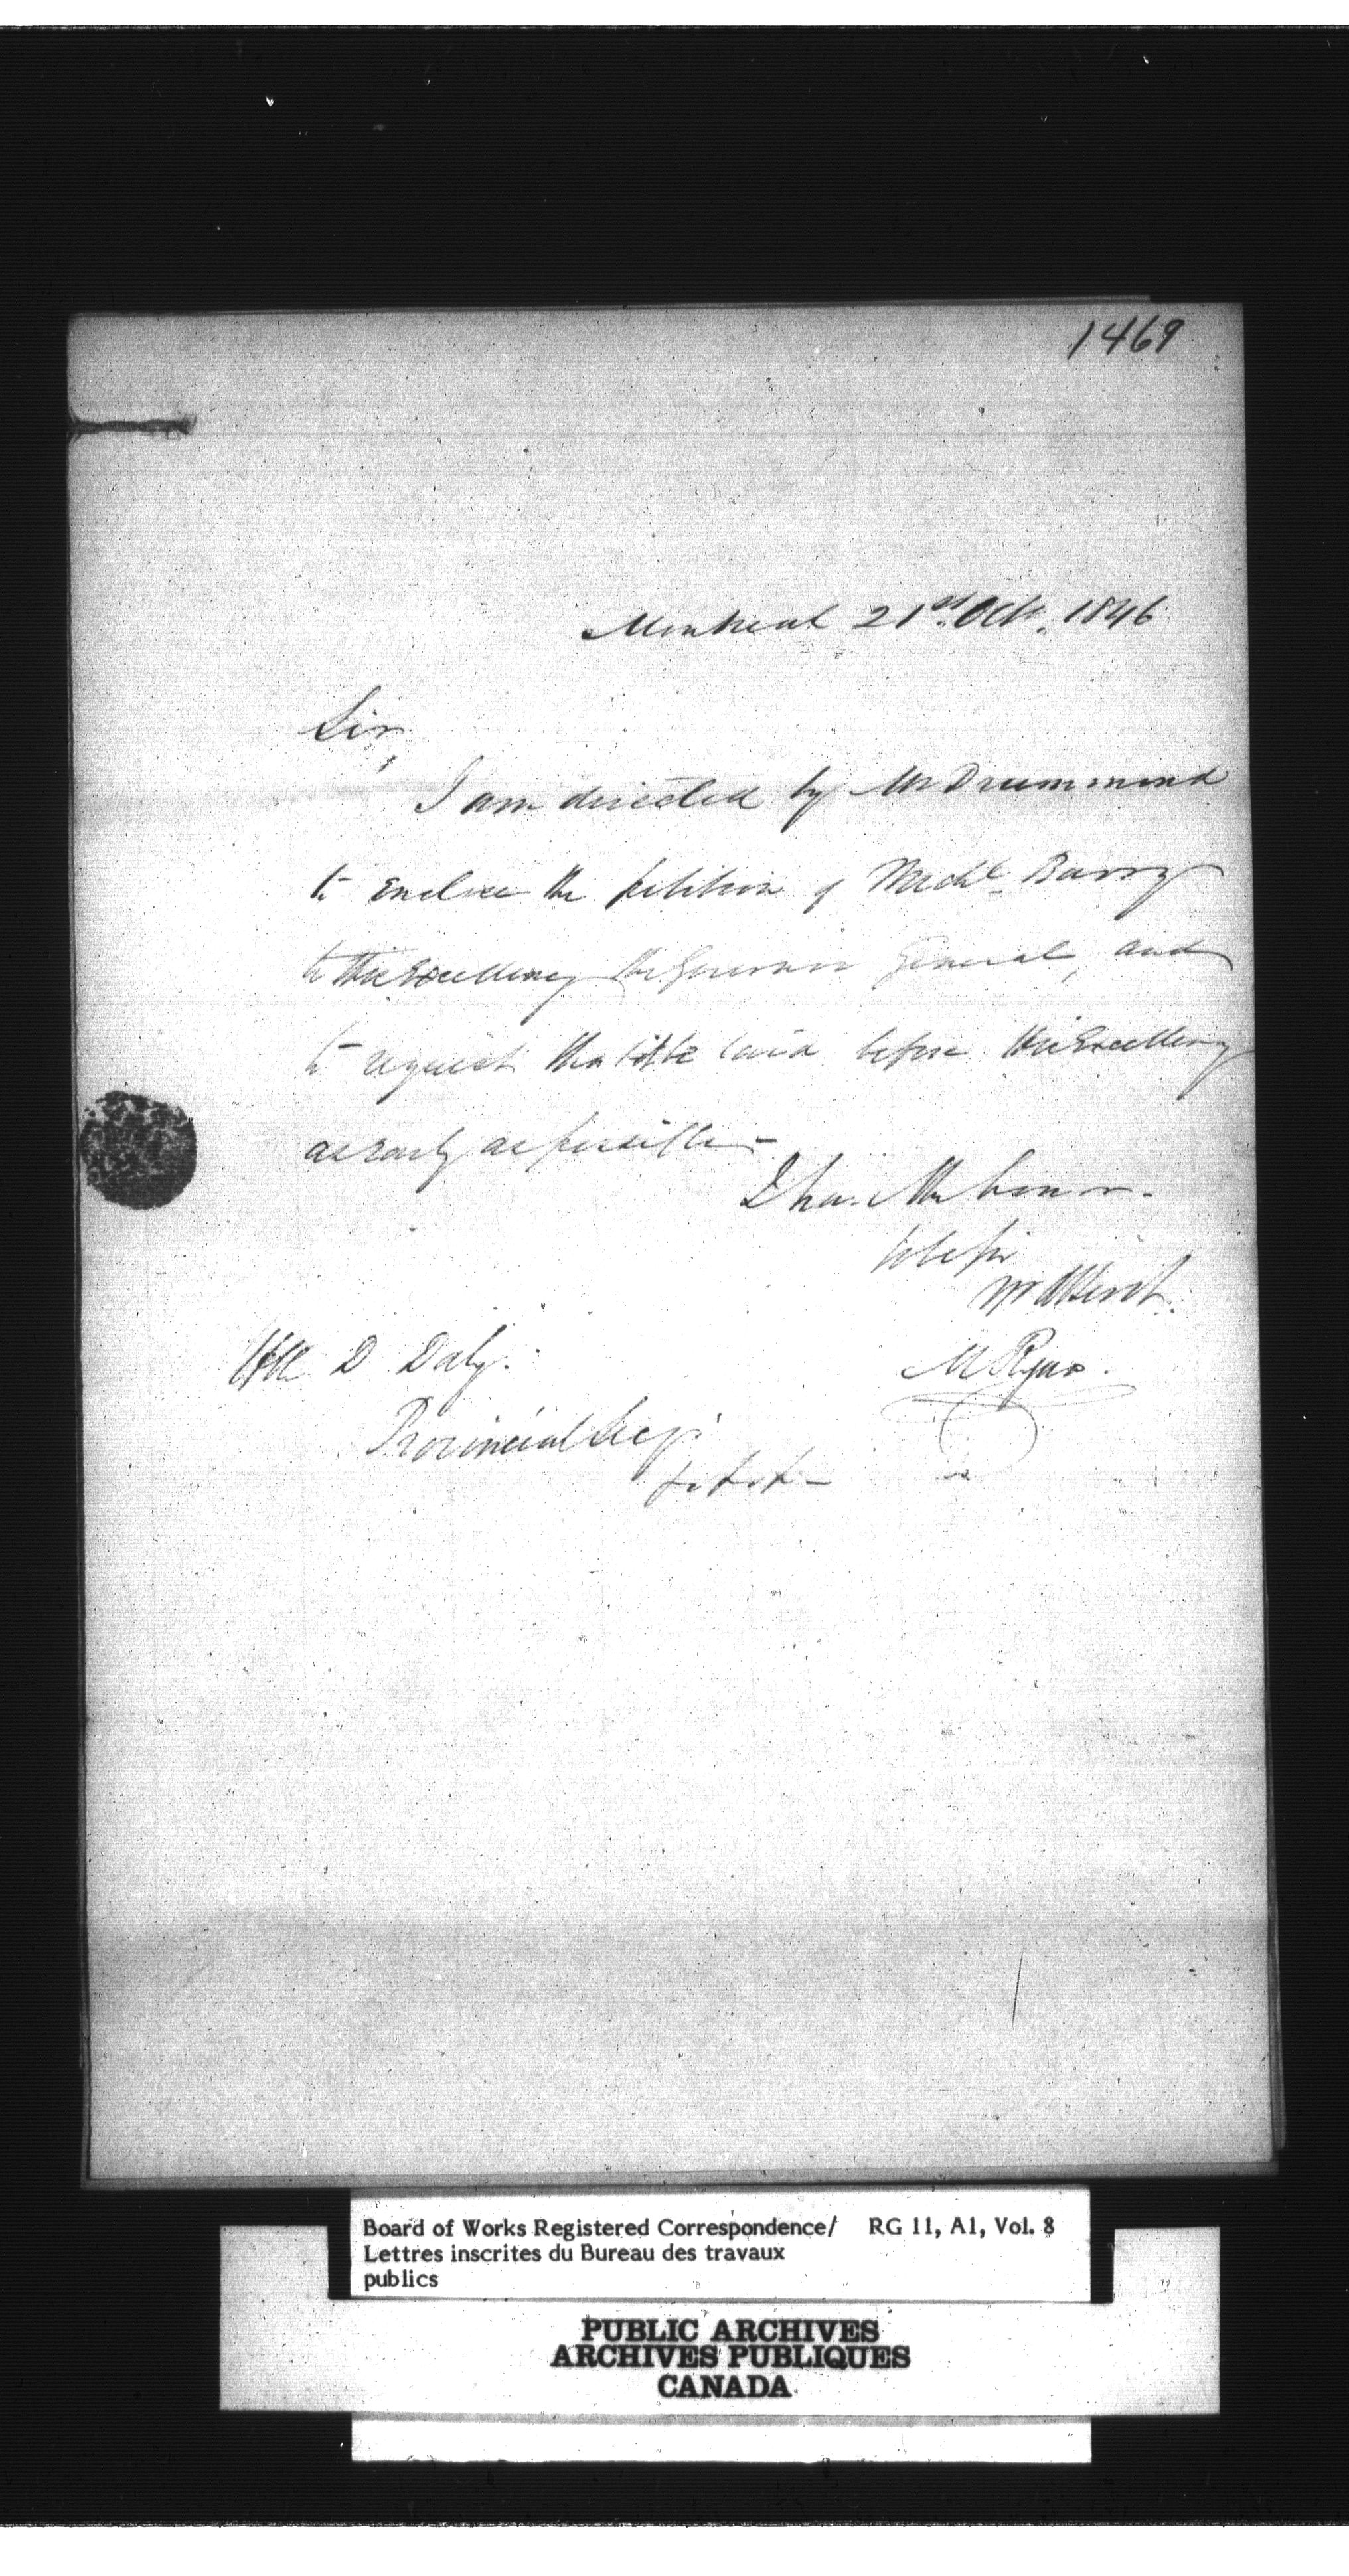 1469
Montreal 21st. Oct. 1846
Sir
I am directed by Mr Drummond
to enclose the petition of Michl. Barry
to His Excellency the Governor General, and
to request that it be laid before His Excellency
as early as possible—
I have the honor.
to be sir
M Ryan.
D Daly.
Provincial Secy
&c &c &c
Board of Works Registered Correspondence/ RG 11, A1, Vol. 8
Lettres inscrites du Bureau des travaux
publics
PUBLIC ARCHIVES
ARCHIVES PUBLIQUES
CANADA